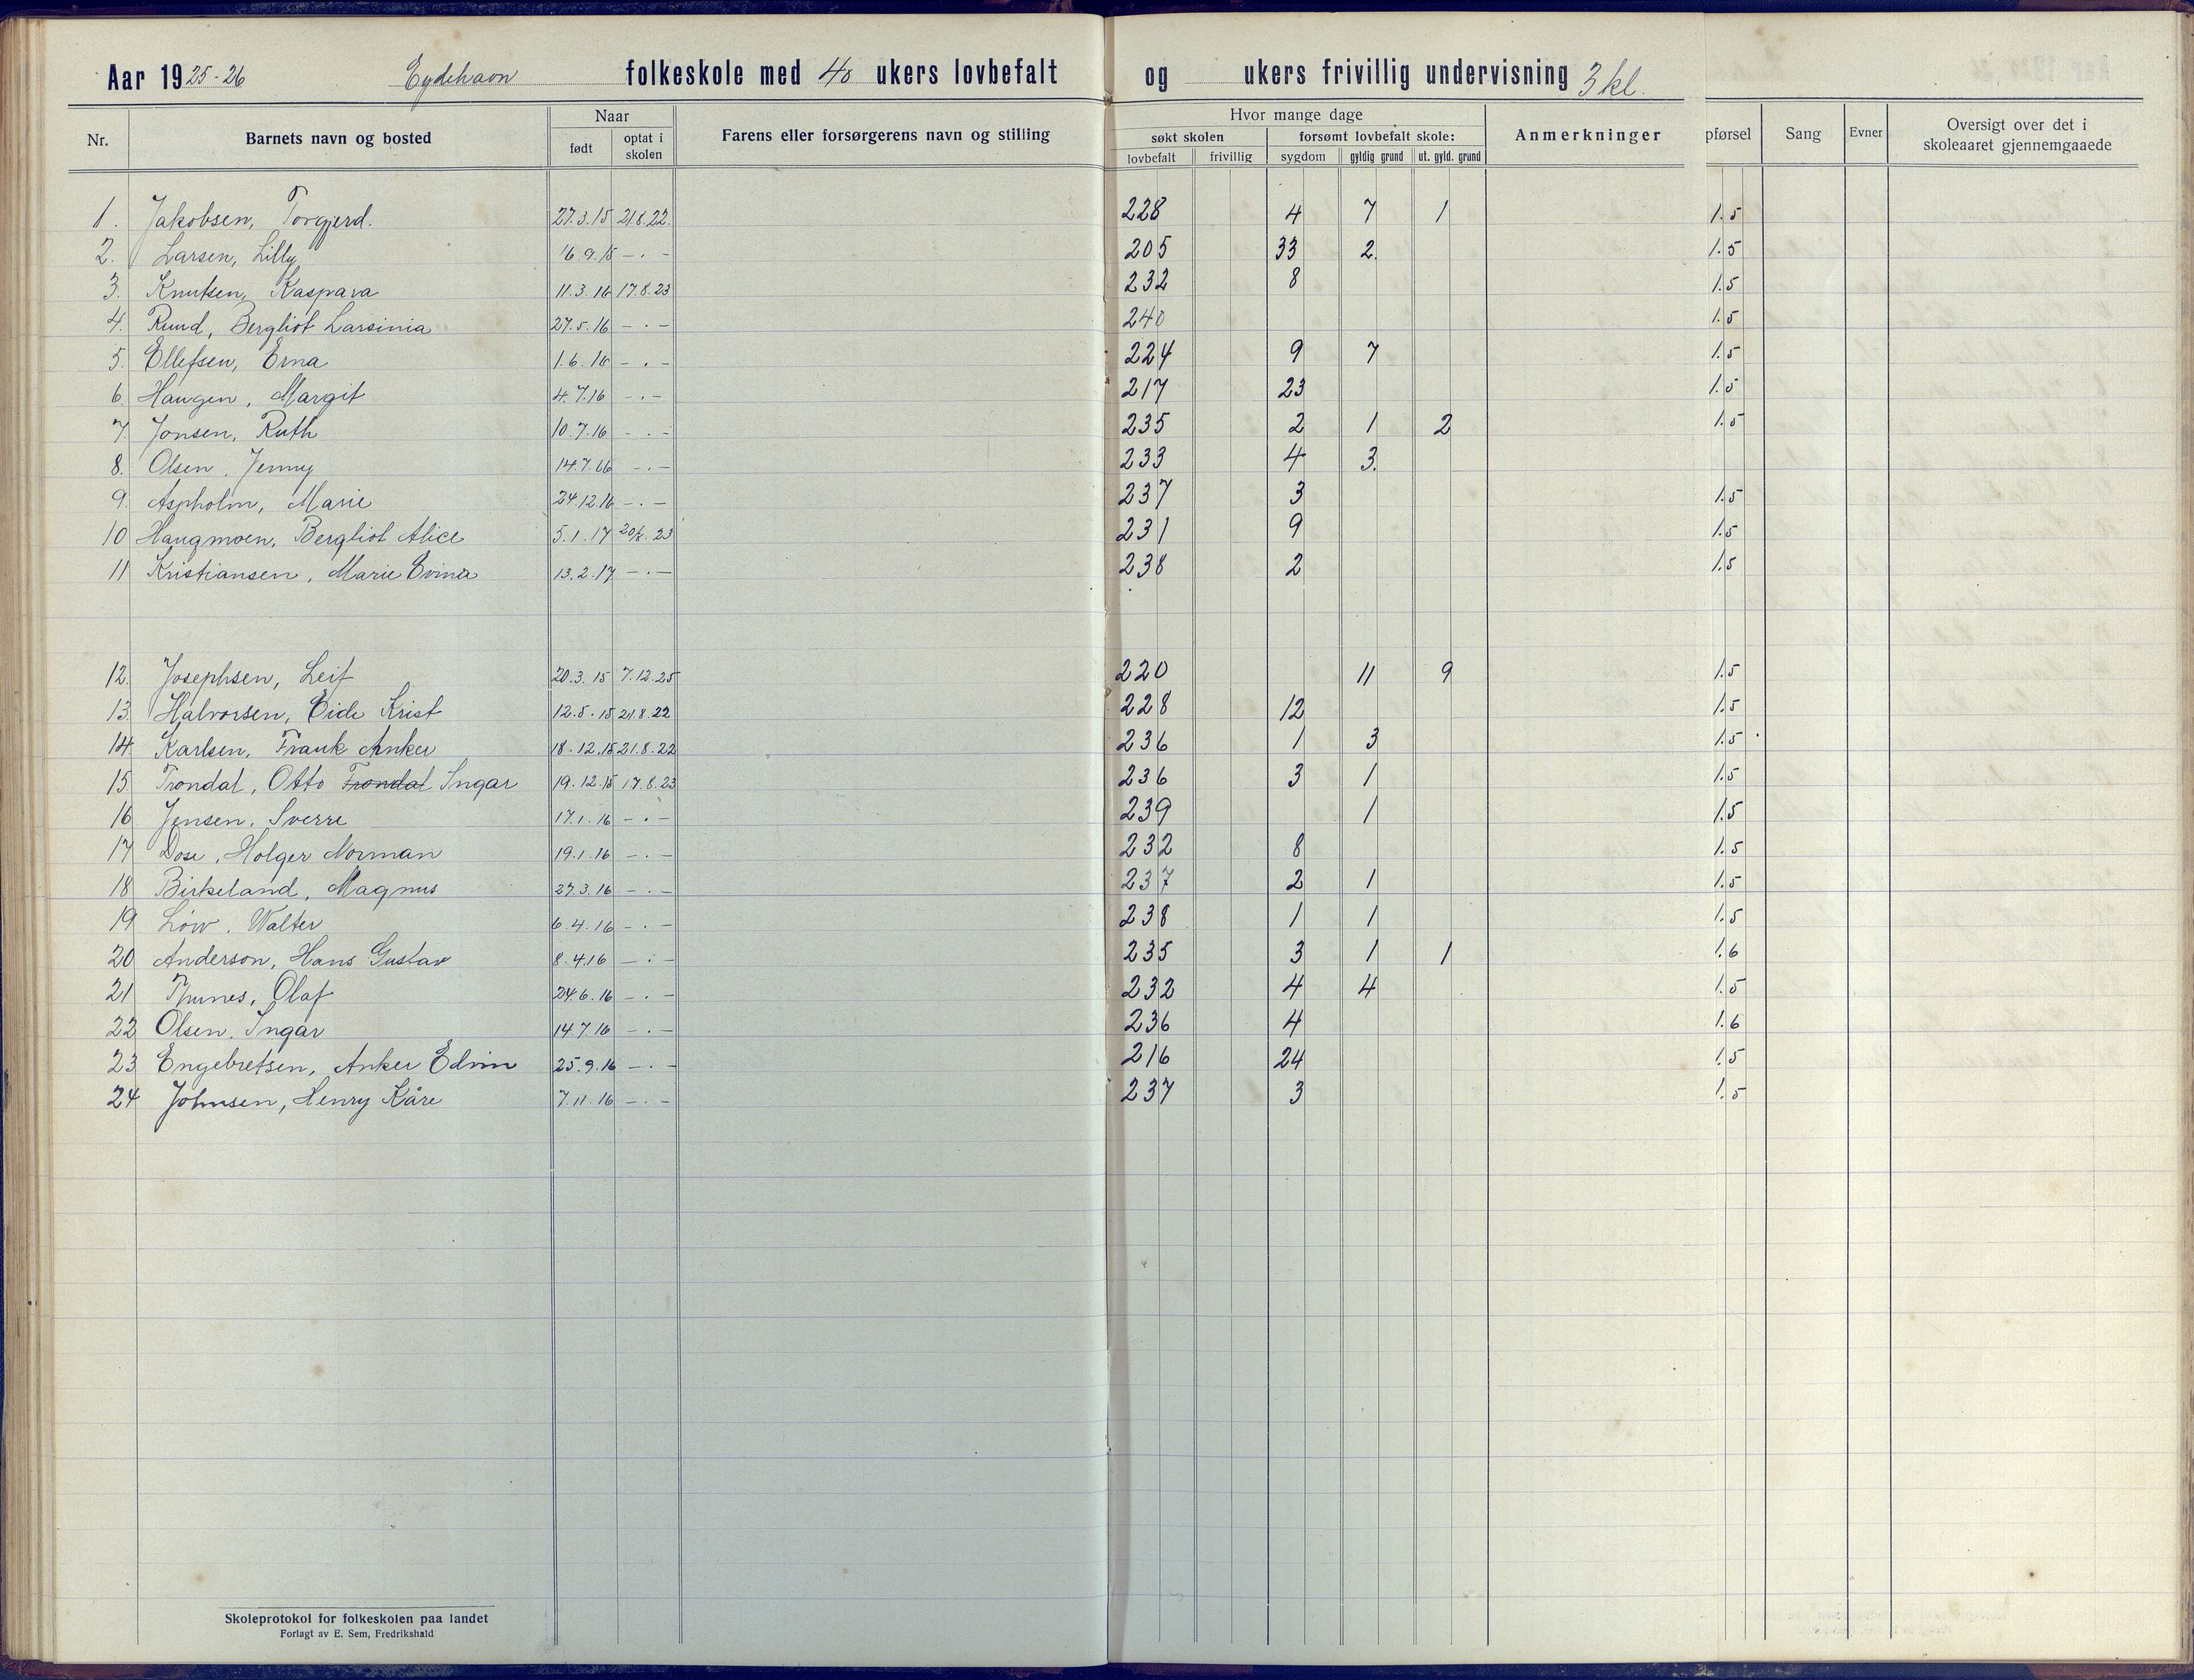 Aar 1925-26 Eydehavn folkeskole med 40 ukers lovbefalt og ukers frivillig undervisning 3 kl.
Nr. Barnets navn og bosted Naar født optat i skolen Farens eller forsørgerens navn og stilling Hvor mange dage søkt skolen lovbefalt frivillig forsømt lovbefalt skole: sygdom gyldig grund ut. gyld. grund Anmerkninger pførsel Sang Evner Oversigt over det i skoleaaret gjennemgaaede
1. Jakobsen, Torgjerd. 27.3.15 21.8.22. 228 4 7 1 1.5
2. Larsen, Lilly 16.9.15 -.- 205 33 2. 1.5
3. Knutsen, Kaspara 11.3.16 17.8.23 232 8 1.5
4. Ruud, Bergliot Larsinia 27.5.16 -.- 240 1.5
5. Ellefsen, Erna 1.6.16 -.- 224 9 7 1.5
6. Haugen, Margit 4.7.16 -.- 217 23 1.5
7. Jonsen, Ruth 10.7.16 -.- 235 2 1 2 1.5
8. Olsen, Jenny 14.7.16 -.- 233 4 3.
9. Aspholm, Marie 24.12.16 -.- 237 3 1.5
10 Haugmoen, Bergliot Alice 5.1.17 20/8.23 231 9 1.5
11 Kristiansen, Marie Evina 13.2.17 -.- 238 2 1.5
12. Josephsen, Leif 20.3.15 7.12.25 220 11 9 1.5
13. Halvorsen, Eide Krist 12.5.15 21.8.22 228 12 1.5
14. Karlsen, Frank Anker 18.12.15 21.8.22 236 1 3 1.5
15 Trondal, Otto Trondal Ingar 19.12.15 17.8.23 236 3 1 1.5
16 Jensen, Sverre 17.1.16 -.- 239 1 1.5
17 Dose, Holger Norman 19.1.16 -.- 232 8 1.5
18 Birkeland, Magnus 27.3.16 -.- 237 2 1 1.5
19 Löw, Walter 6.4.16 -.- 238 1 1 1.5
20 Anderson, Hans Gustav 8.4.16 -.- 235 3 1 1 1.6
21 Thunes, Olaf 24.6.16 -.- 232 4 4 1.5
22 Olsen, Ingar 14.7.16 -.- 236 4 1.6
23 Engebretsen, Anker Edvin 25.9.16 -.- 216 24 1.5
24 Johnsen, Henry Kåre 7.11.16 -.- 237 3 1.5
Skoleprotokol for folkeskolen paa landet
Forlagt av E. Sem, Fredrikshald